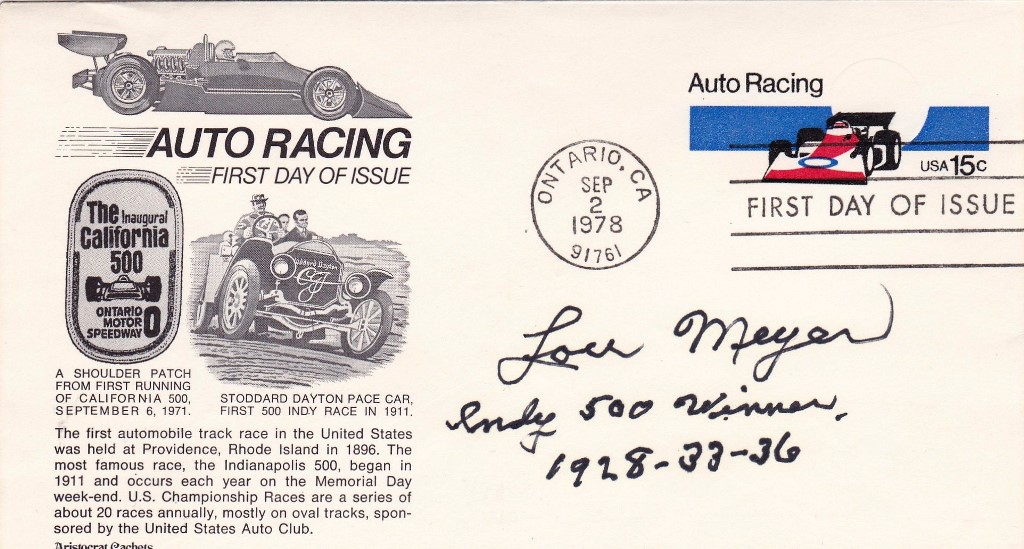 AUTO RACING
FIRST DAY OF ISSUE
The Inaugural
California
500
ONTARIO
MOTOR
SPEEDWAY
A SHOULDER PATCH
FROM FIRST RUNNING
OF CALIFORNIA 500,
SEPTEMBER 6, 1971.
STODDARD DAYTON PACE CAR,
FIRST 500 INDY RACE IN 1911.
The first automobile track race in the United States
was held at Providence, Rhode Island in 1896. The
most famous race, the Indianapolis 500, began in
1911 and occurs each year on the Memorial Day
week-end. U.S. Championship Races are a series of
about 20 races annually, mostly on oval tracks, spon-
sored by the United States Auto Club.
Aristocrat Cachets
ONTARIO, CA
SEP
2
1978
91761
Auto Racing
USA 15c
FIRST DAY OF ISSUE
Lou Meyer
Indy 500 Winner.
1928-33-36